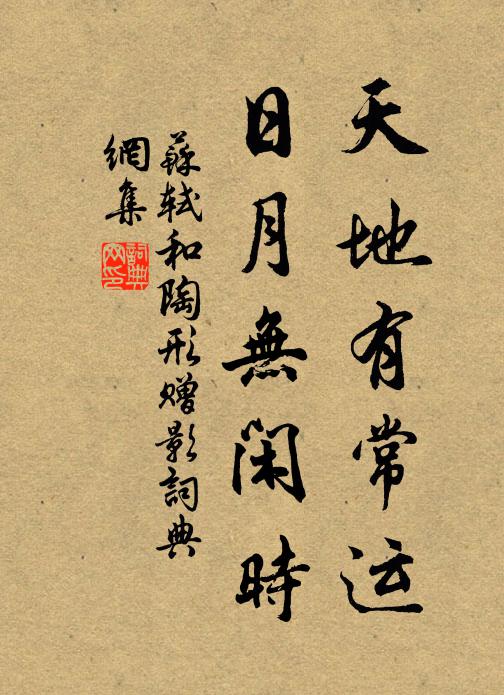 天地有常运
日月無閑時
蘇軾和陶形赠影詞典
網集
詞典
网印